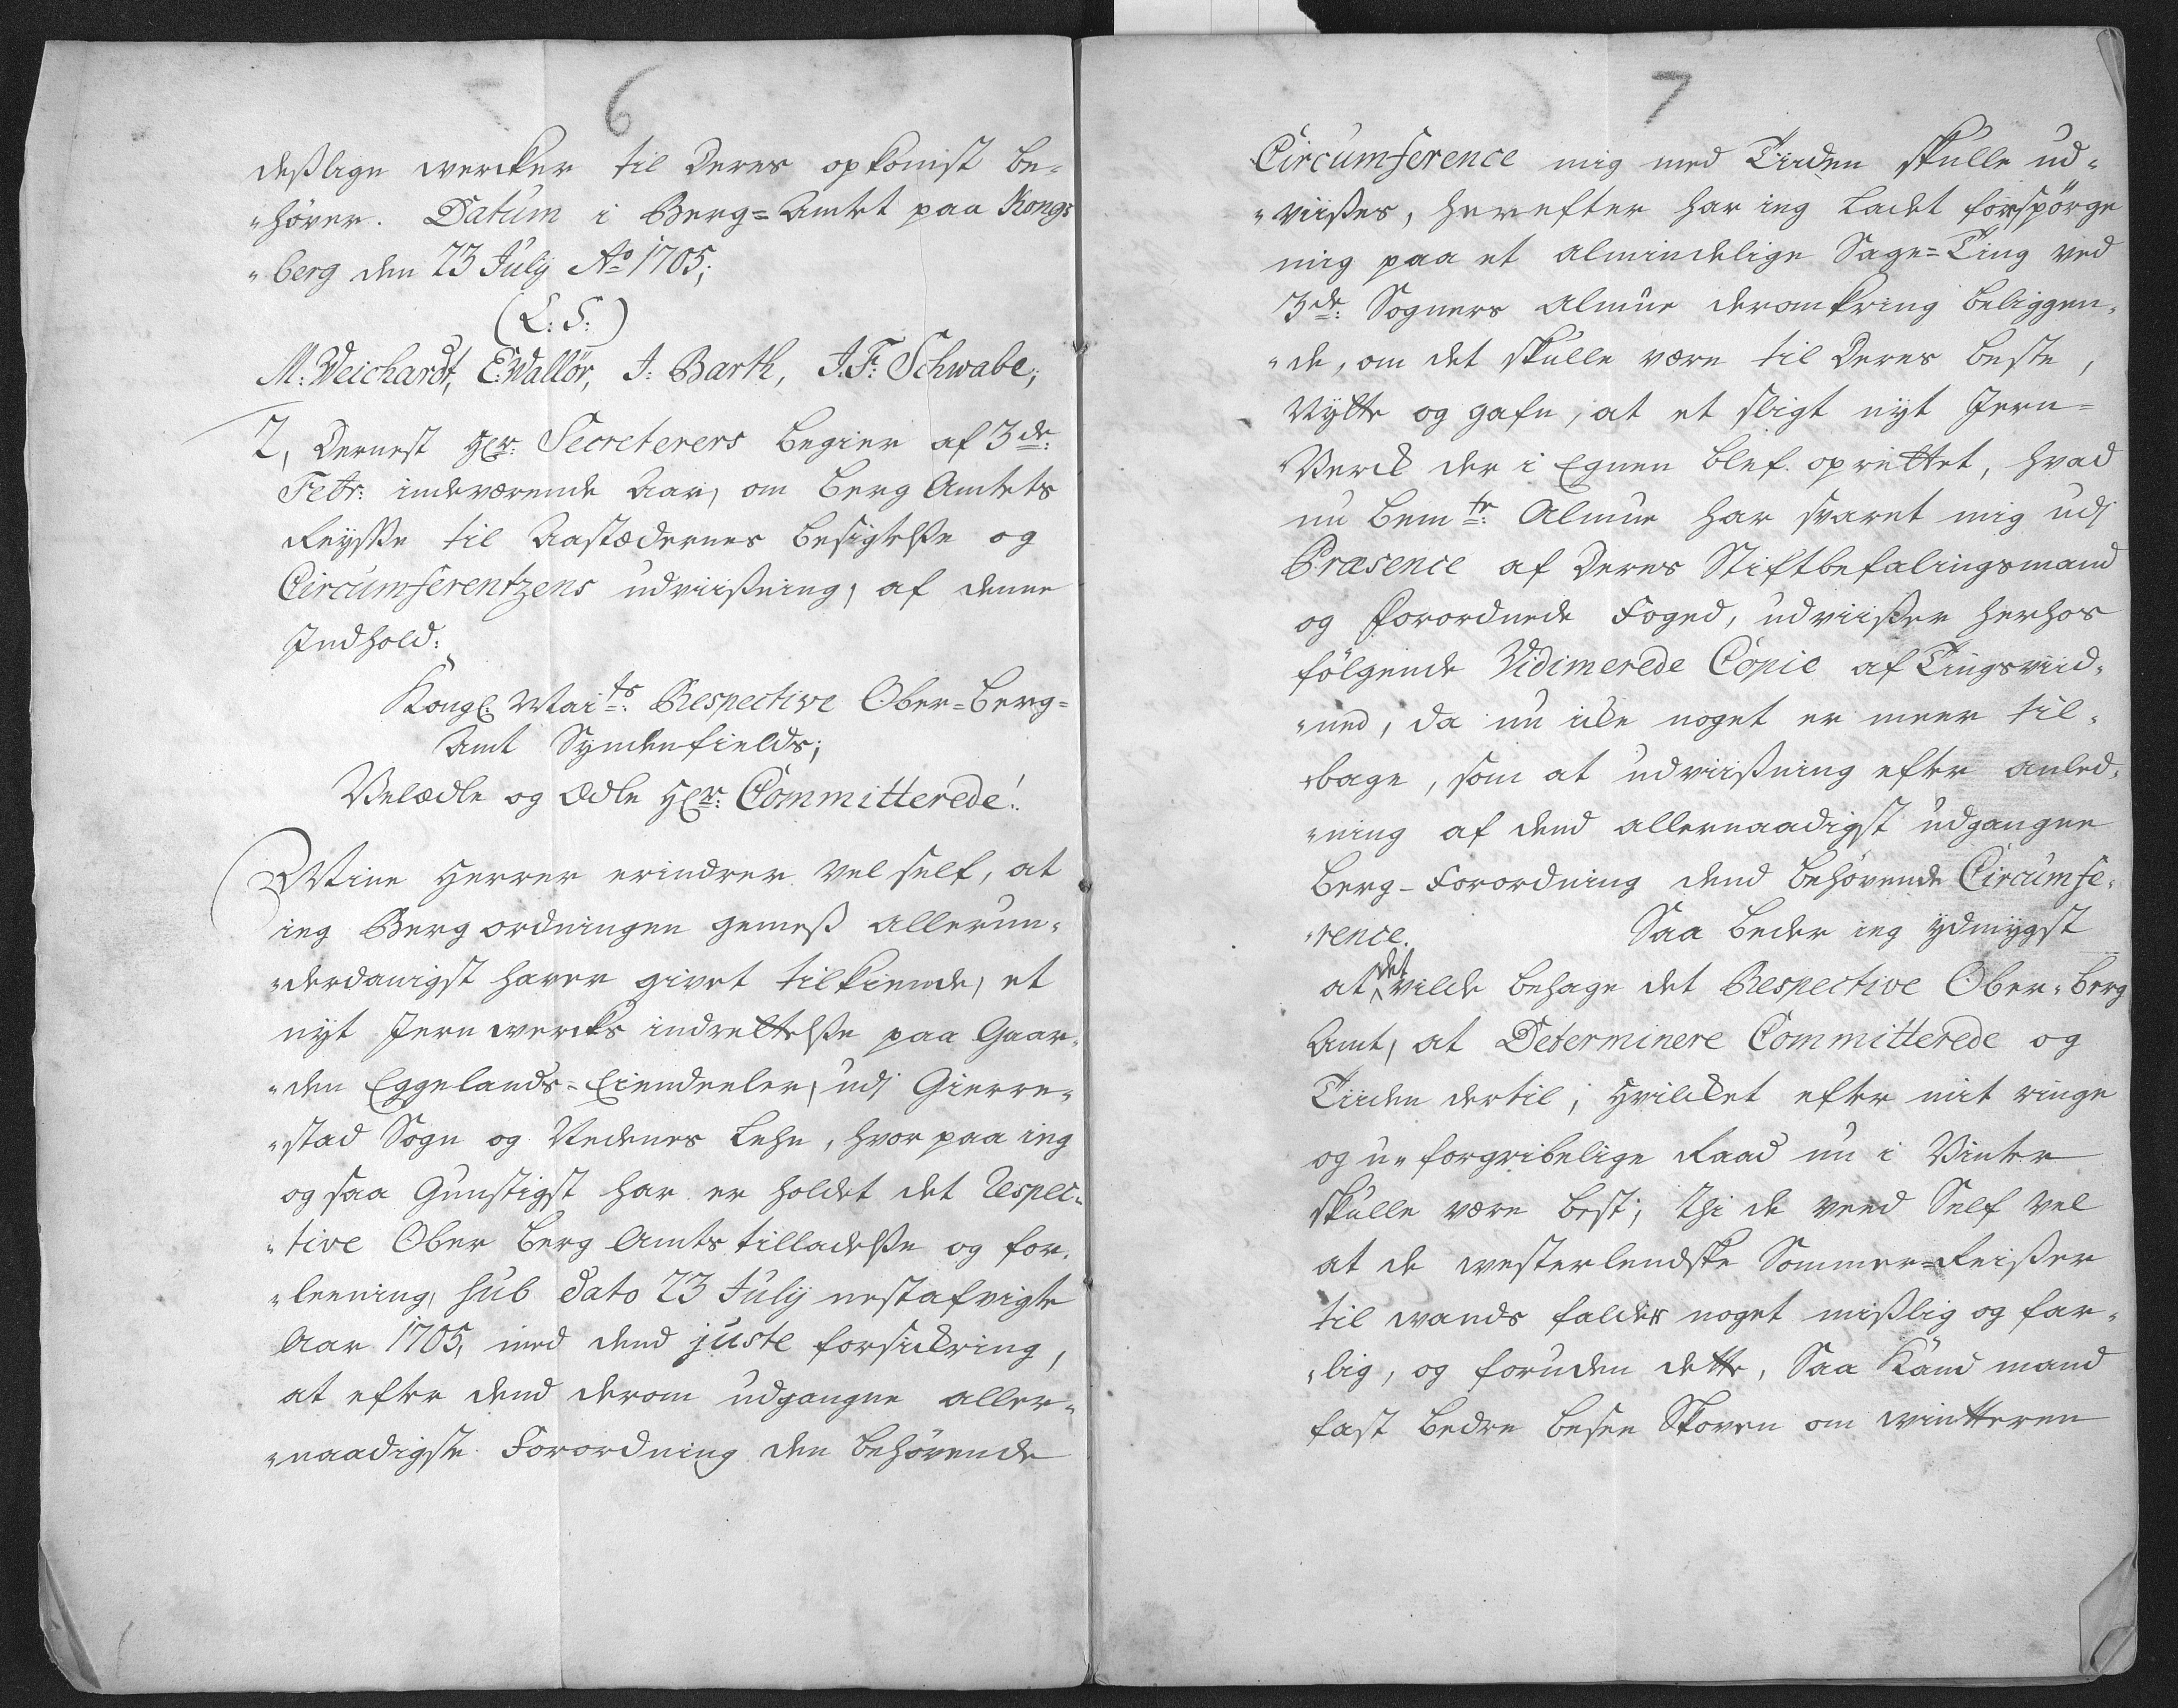 6
deslige wercker til deres opkomst be-
"höver. Datum i Berg=Amtet paa Kongs
"berg den 23 July Ao 1705;
(L: S:)
M: Weichardt, E: Wallör, J: Barth, J. F: Schwabe;
2, Dernest Hr: Secreterers begier af 3de:
Febr: indeværende Aar, om Berg Amtets
Reysse til Aastædernes besigtelsse og
Circumferentzens udviissning, af denne
Indhold:
Kongl: Mai ts: Respective Ober=Berg=
Amt Syndenfields;
Velædle og Ædle Hr: Committerede!
Mine Herrer erindrer vel self, at
ieg Bergordningen gemess allerun-
"derdanigst haver givet tilkiende, et
nyt Jernwercks indrettelsse paa Gaar-
"den Eggelands=Eiendeeler, udj Gierre-
"stad Sogn og Nedenes Lehn, hvor paa ieg
og saa Gunstigst har er holdet det Respec-
"tive Ober Berg Amts tilladelsse og for-
"leening, sub dato 23 July nestafvigte
Aar 1705, med dend juste forsickring,
at efter dend derom udgangne aller-
"naadigste Forordning den behövende
7
Circumference mig med Tiiden skulle ud-
"viisses, herefter har ieg ladet forspörge
mig paa et almindelige Sage=Ting ved
3de: Sogners Almue deromkring beliggen-
"de, om det skulle være til deres beste,
Nytte og gafn, at et sligt nyt Jern=
Verck der i Egnen blef oprettet, hvad
nu bem te: Almue har svaret mig udj
Præsence af deres Stiftbefalingsmand
og Forordnede Foged, udviisser herhos
fölgende Vidimerede Copie af Tingsvid-
"ned, da nu icke noget er meer til-
"bage, som at udviissning efter anled-
"ning af dend allernaadigst udgangne
Berg-Forordning dend behövende Circumfe-
"rence. Saa beder ieg ydmygst
at det vilde behage det Respective Ober-Berg
Amt, at Determinere Committerede og
Tiiden dertil, Hvilcket efter mit ringe
og u-forgribelige Raad nu i Vinter
skulle være best; thi de veed Self vel
at de westerlendske Sommer=Reisser
til wands falder noget misslig og far-
"lig, og foruden dette, Saa Kand mand
fast bedre besee Skoven om wintteren